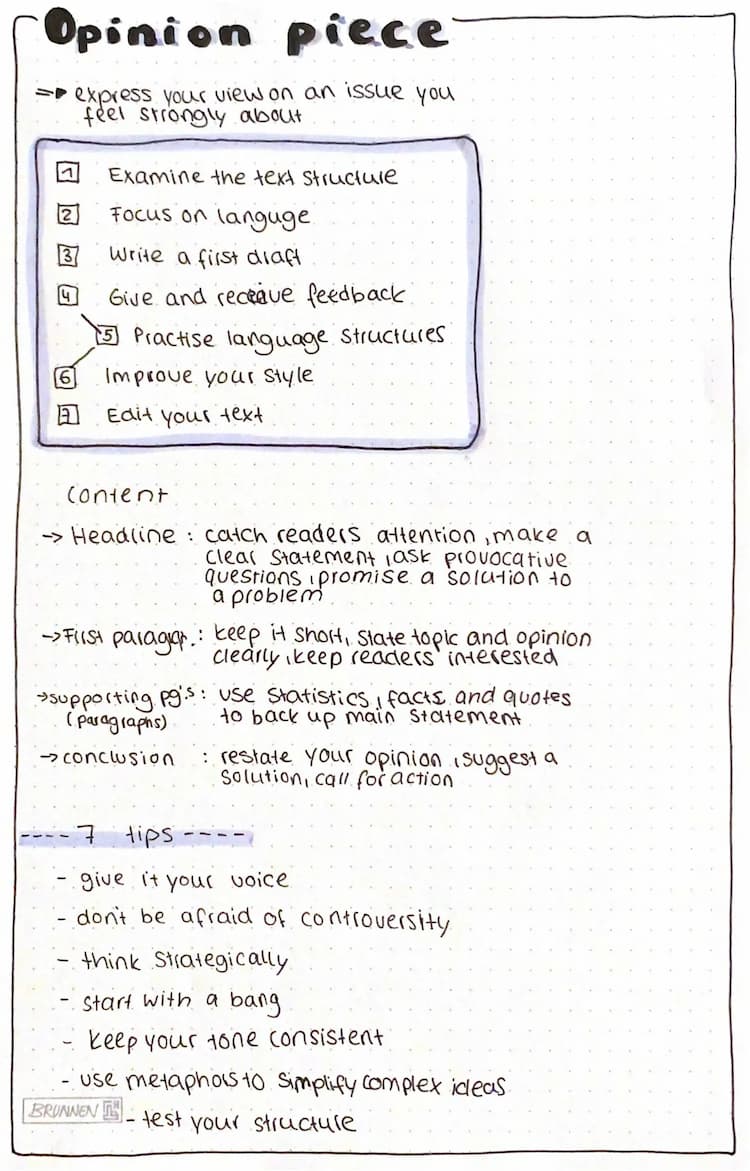 Opinion piece
=> express your view on an issue you
feel strongly about
1 Examine the text structure
2 Focus on languge
3 Write a first draft
4 Give and receive feedback
5 Practise language structures
6 Improve your style
7 Edit your text
content
-> Headline : catch readers attention, make a
clear statement, ask provocative
questions, promise a solution to
a problem
-> First paragr.: keep it short, state topic and opinion
clearly, keep readers interested
-> supporting pg's : use statistics, facts and quotes
(paragraphs) to back up main statement
-> conclusion : restate your opinion, suggest a
solution, call for action
---- 7 tips ----
- give it your voice
- don't be afraid of controversity
- think strategically
- start with a bang
- keep your tone consistent
- use metaphors to simplify complex ideas
BRUNNEN - test your structure